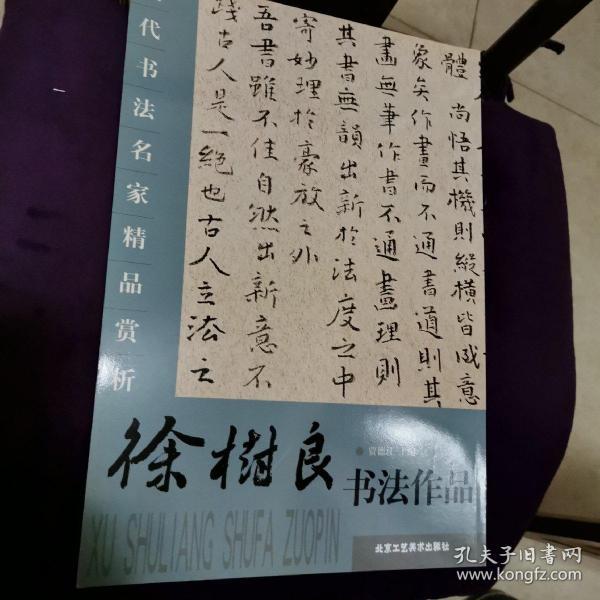 代书法名家精品赏析
體尚悟其機則縱橫皆成意
象矣作畫而不通書道則其
畫無筆作書不通畫理則
其書無韻出新於法度之中
寄妙理於豪放之外
吾書雖不佳自然出新意不
踐古人是一絕也古人立法之
徐樹良
贾德江
书法作品
XU SHULIANG SHUFA ZUOPIN
北京工艺美术出版社
孔夫子旧书网
www.kongfz.com